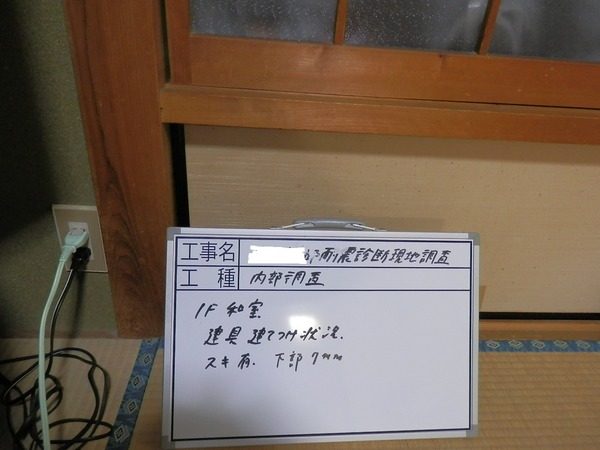 工事名 耐震診断現地調査
工種 内部調査
1F 和室
建具 建てつけ状況.
スキ有. 下部 7mm